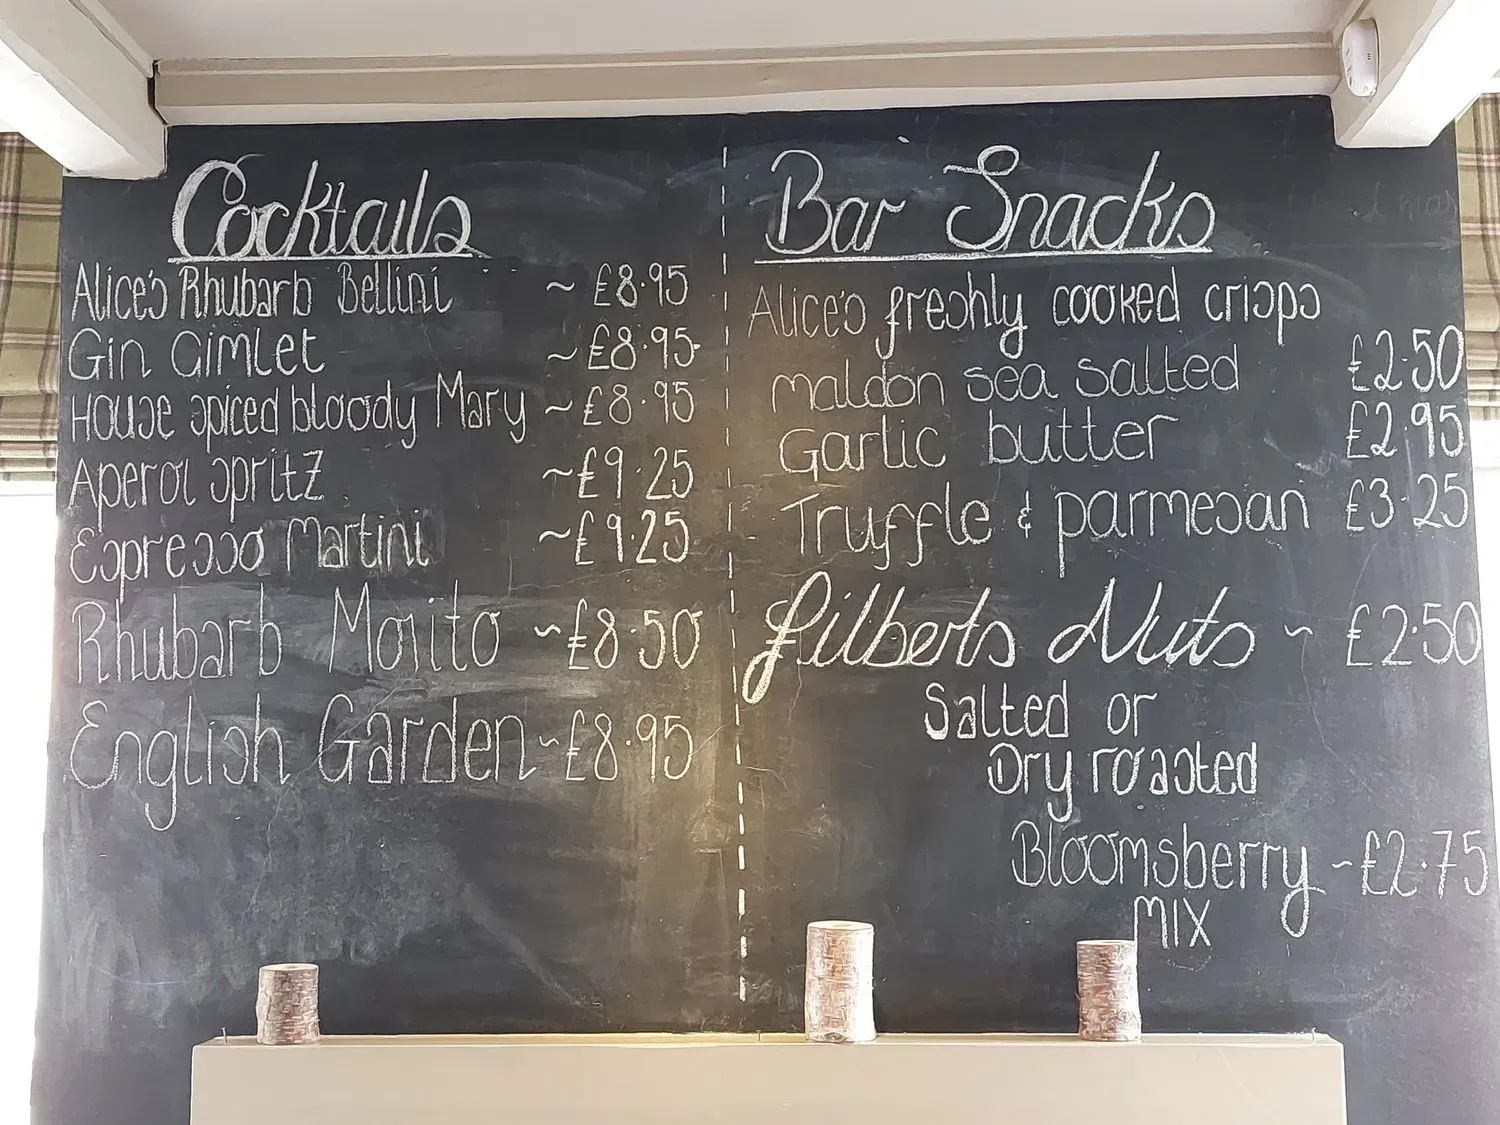 Cocktails
Alice's Rhubarb Bellini ~ £8.95
Gin Gimlet ~ £8.95
House spiced bloody Mary ~ £8.95
Aperol spritz ~ £9.25
Espresso Martini ~ £9.25
Rhubarb Mojito ~ £8.50
English Garden ~ £8.95
Bar Snacks
Alice's freshly cooked crisps
maldon sea salted £2.50
Garlic butter £2.95
Truffle & parmesan £3.25
Filberts Nuts ~ £2.50
Salted or
Dry roasted
Bloomsberry ~ £2.75
MIX